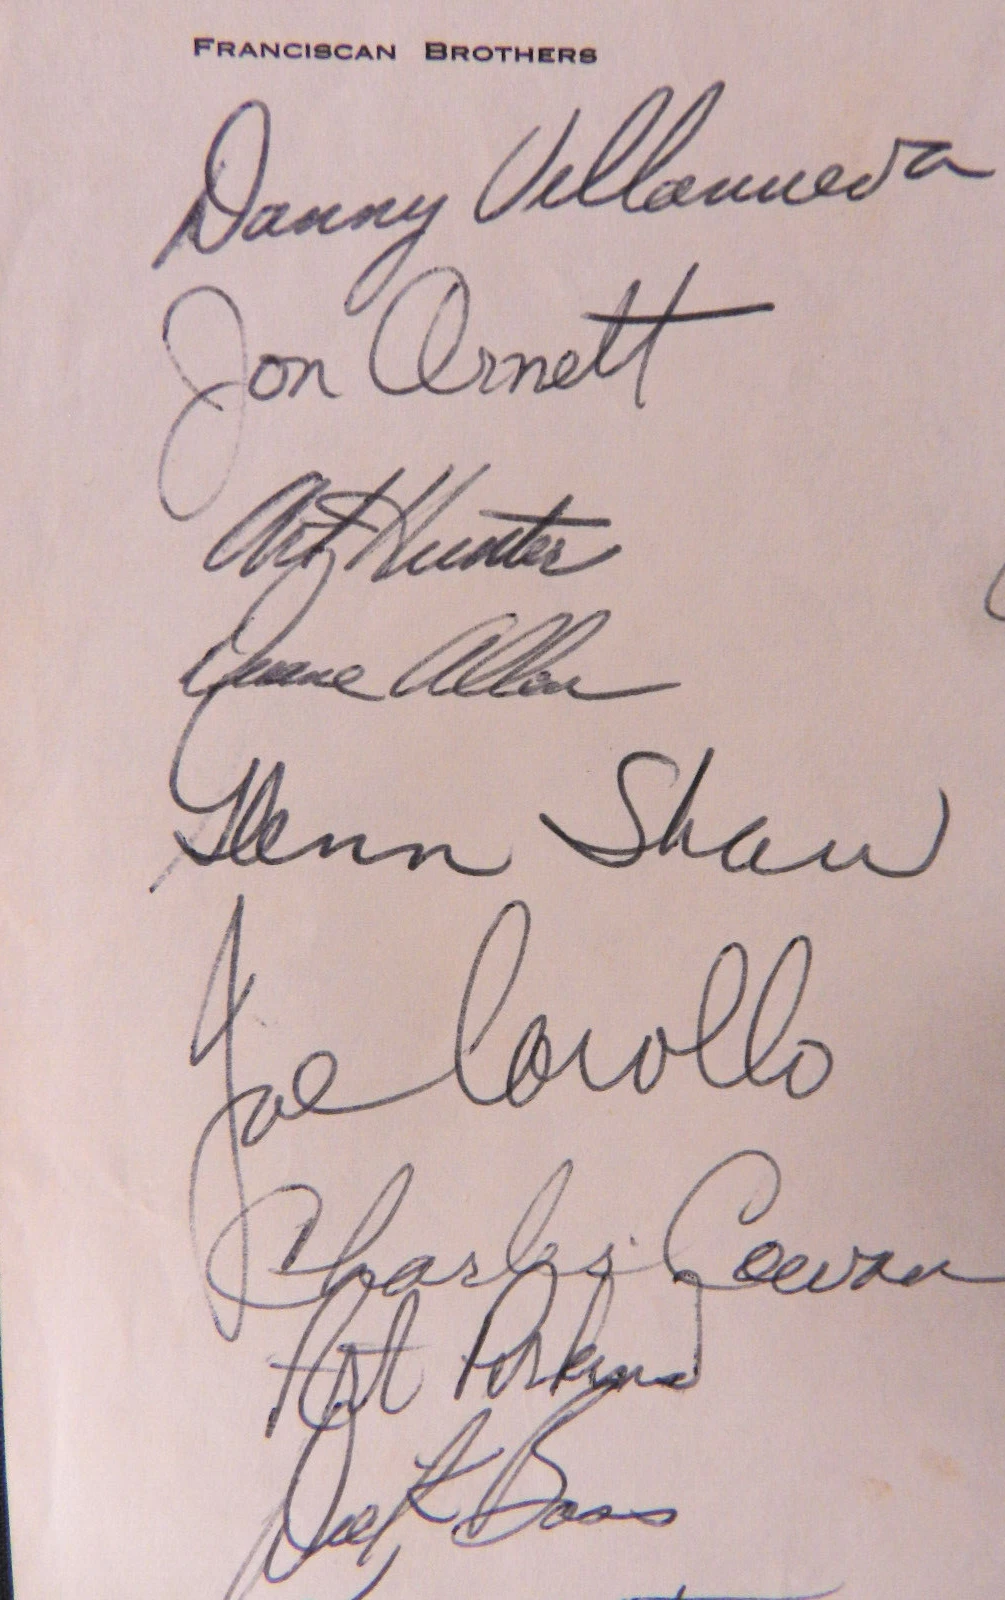 FRANCISCAN BROTHERS
Danny Villanueva
Jon Arnett
Art Hunter
Duane Allen
Glenn Shaw
Joe Carollo
Charles Cowan
Art Perkins
Dick Bass